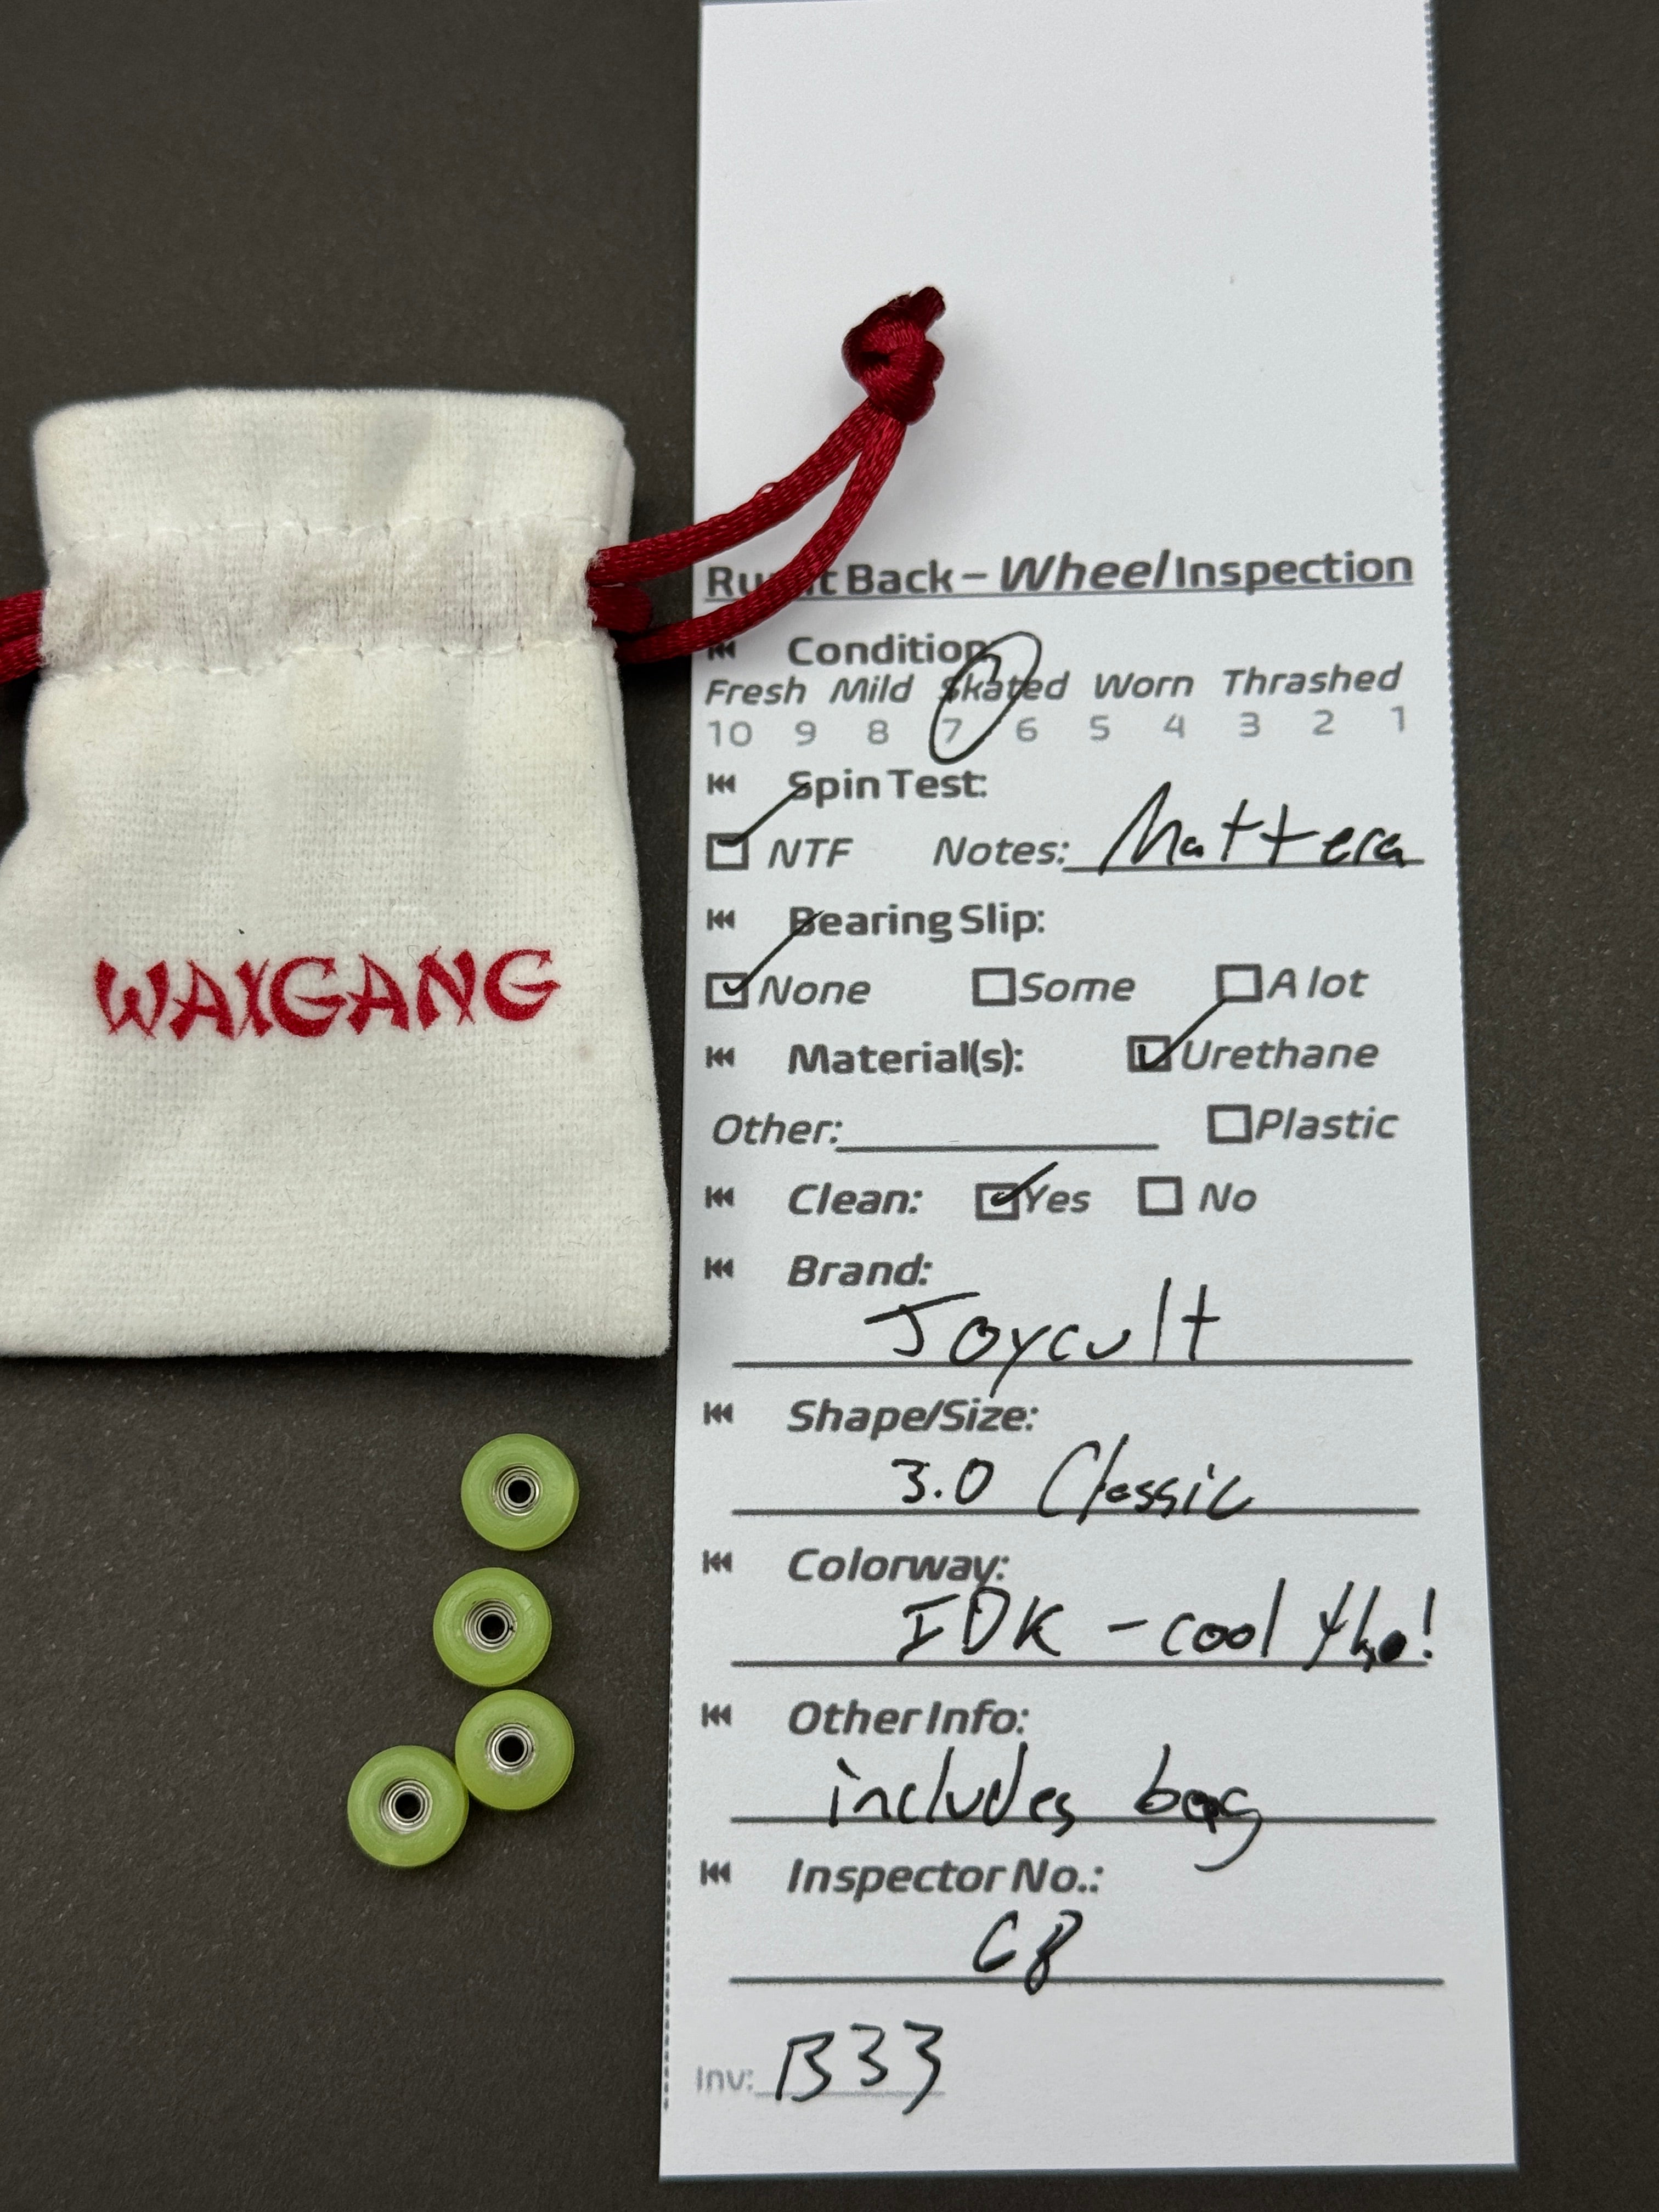 WAXGANG
Ru t Back – Wheel Inspection
Condition
Fresh Mild Skated Worn Thrashed
10 9 8 7 6 5 4 3 2 1
Spin Test:
NTF Notes: Mattera
Bearing Slip:
None Some A lot
Material(s): Urethane
Other: Plastic
Clean: Yes No
Brand:
Joycult
Shape/Size:
3.0 Classic
Colorway:
IDK - cool tho!
Other Info:
includes bag
Inspector No.:
Inv: B33